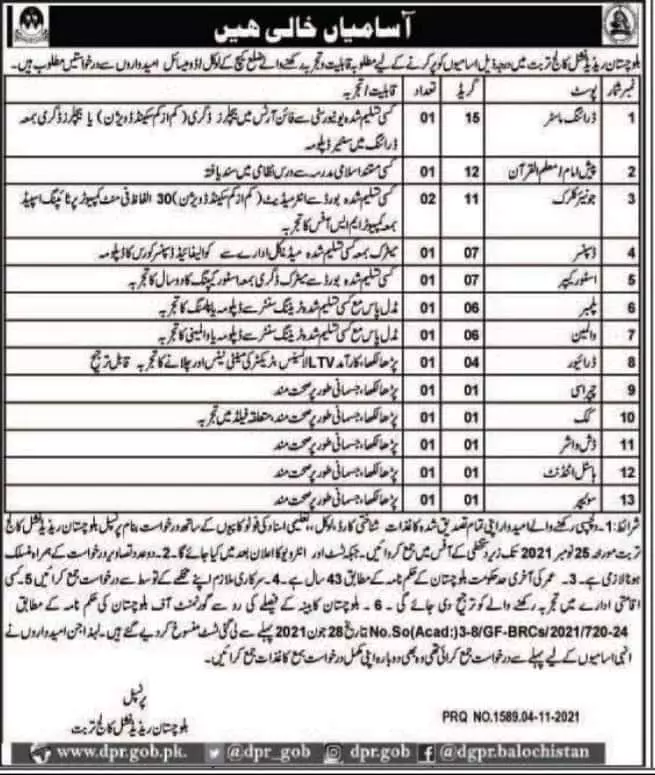 آسامیاں خالی ھیں
بلوچستان ریذیڈنشل کالج تربت میں درجہ ذیل اسامیوں کو پر کرنے کے لیے مطلوبہ قابلیت و تجربہ رکھنے والے ضلع کیچ کے لوکل / ڈومیسائل امیدواروں سے درخواستیں مطلوب ہیں۔
نمبر شمار پوسٹ گریڈ تعداد قابلیت / تجربہ
1 ڈرائنگ ماسٹر 15 01 کسی تسلیم شدہ یونیورسٹی سے فائن آرٹس میں بیچلرز ڈگری (کم از کم سیکنڈ ڈویژن) یا بیچلرز ڈگری بمعہ
ڈرائنگ میں سینئر ڈپلومہ
2 پیش امام / معلم القرآن 12 01 کسی مستند اسلامی مدرسہ سے درس نظامی میں سند یافتہ
3 جونیئر کلرک 11 02 کسی تسلیم شدہ بورڈ سے انٹرمیڈیٹ (کم از کم سیکنڈ ڈویژن) 30 الفاظ فی منٹ کمپیوٹر پر ٹائپنگ اسپیڈ
بمعہ کمپیوٹر ایم ایس آفس کا تجربہ
4 ڈسپنسر 07 01 میٹرک بمعہ کسی تسلیم شدہ میڈیکل ادارے سے کوالیفائیڈ ڈسپنسر کورس کا ڈپلومہ
5 اسٹور کیپر 07 01 کسی تسلیم شدہ بورڈ سے میٹرک ڈگری بمعہ اسٹور کیپنگ کا دو سال کا تجربہ
6 پلمبر 06 01 مڈل پاس مع کسی تسلیم شدہ ٹریننگ سنٹر سے ڈپلومہ یا پلمبنگ کا تجربہ
7 والمین 06 01 مڈل پاس مع کسی تسلیم شدہ ٹریننگ سنٹر سے ڈپلومہ یا والمینی کا تجربہ
8 ڈرائیور 04 01 پڑھا لکھا، کارآمد LTV لائسینس، ٹریکٹر کی مینٹی نینس اور چلانے کا تجربہ قابل ترجیح
9 چپراسی 01 01 پڑھا لکھا، جسمانی طور پر صحت مند
10 کک 01 01 پڑھا لکھا، جسمانی طور پر صحت مند، متعلقہ فیلڈ میں تجربہ
11 ڈش واشر 01 01 پڑھا لکھا، جسمانی طور پر صحت مند
12 ہاسٹل اٹنڈنٹ 01 01 پڑھا لکھا، جسمانی طور پر صحت مند
13 سوئیپر 01 01 پڑھا لکھا، جسمانی طور پر صحت مند
شرائط: 1۔ دلچسپی رکھنے والے امیدوار اپنی تمام تصدیق شدہ کاغذات شناختی کارڈ، لوکل، تعلیمی اسناد کی فوٹو کاپیوں کے ساتھ درخواست بنام پرنسپل بلوچستان ریذیڈنشل کالج
تربت مورخہ 25 نومبر 2021 تک زیر دستخطی کے آفس میں جمع کروائیں۔ جبکہ ٹسٹ اور انٹرویو کا اعلان بعد میں کیا جائے گا۔ 2۔ دو عدد تصاویر درخواست کے ہمراہ منسلک
ہونا لازمی ہے۔ 3۔ عمر کی آخری حد حکومت بلوچستان کے حکم نامہ کے مطابق 43 سال ہے۔ 4۔ سرکاری ملازم اپنے محکمے کے توسط سے درخواست جمع کرائیں 5۔ کسی
اقامتی ادارے میں تجربہ رکھنے والے کو ترجیح دی جائے گی۔ 6۔ بلوچستان کابینہ کے فیصلے کی رو سے گورنمنٹ آف بلوچستان کی حکم نامہ کے مطابق
No.So(Acad:)3-8/GF-BRCs/2021/720-24 تاریخ 28 جون 2021 پہلے سے لی گئی ٹسٹ منسوخ کر دیے گئے ہیں۔ لہذا جن امیدواروں نے
انہی اسامیوں کے لیے پہلے سے درخواست جمع کرائی تھی وہ بھی دوبارہ اپنی مکمل درخواست بمع کاغذات جمع کرائیں۔
پرنسپل
بلوچستان ریذیڈنشل کالج تربت
PRQ NO.1589.04-11-2021
www.dpr.gob.pk. @dpr_gob dpr.gob @dgpr.balochistan